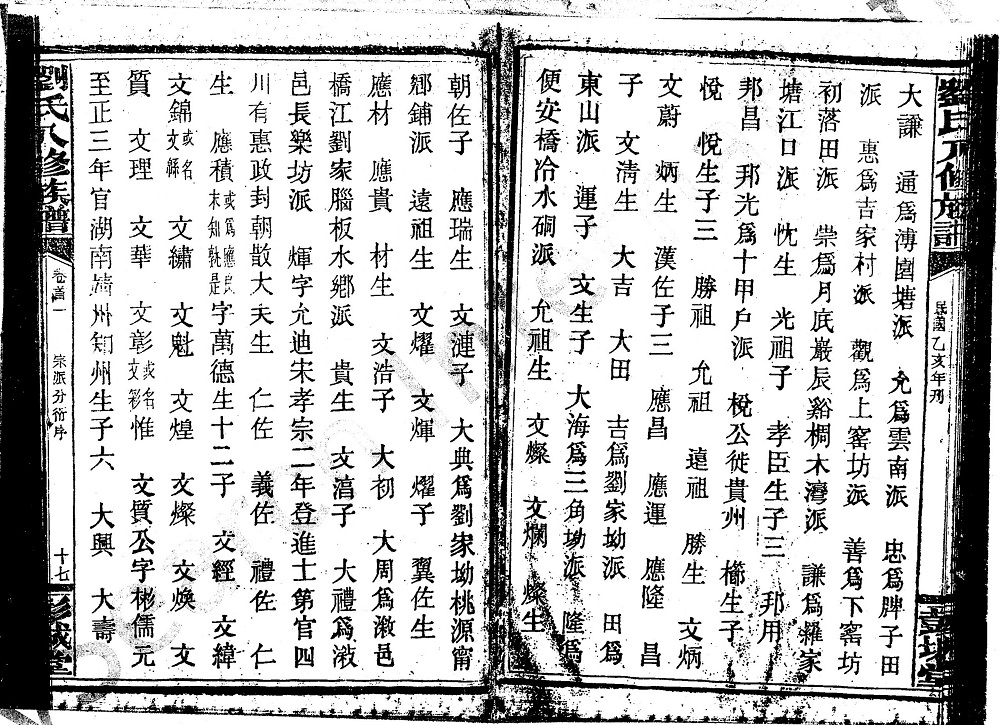 劉氏八修族譜
民國乙亥年刋
彭城堂
大謙 通爲溥園塘派 允爲雲南派 忠爲脾子田
派 惠爲吉家村派 觀爲上窑坊派 善爲下窑坊
初落田派 崇爲月底巖辰谿榈木灣派 謙爲羅家
塘江口派 忱生 光祖子 孝臣生子三 邦用
邦昌 邦光爲十甲戶派 梲公徙貴州 櫛生子
悅 悅生子三 勝祖 允祖 遠祖 勝生 文炳
文蔚 炳生 漢佐子三 應昌 應運 應隆 昌
子 文淸生 大吉 大田 吉爲劉家坳派 田爲
東山派 運子 文生子 大海爲三角坳派 隆爲
便安橋冷水硐派 允祖生 文燦 文爛 燦生
朝佐子 應瑞生 文漣子 大典爲劉家坳桃源甯
鄉鋪派 遠祖生 文燿 文煇 燿子 翼佐生
應材 應貴 材生 文浩子 大礽 大周爲漵邑
橋江劉家腦板水鄉派 貴生 文滈子 大禮爲漵
邑長樂坊派 煇字允迪宋孝宗二年登進士第官四
川有惠政封朝散大夫生 仁佐 義佐 禮佐 仁
生 應積或爲應良未知孰是字萬德生十二子 文經 文緯
文錦或名文縣 文繡 文魁 文煌 文燦 文煥 文
質 文理 文華 文彰或名文彩惟 文質公字彬儒元
至正三年官湖南靖州知州生子六 大興 大壽
劉氏八修族譜
卷首一
宗派分衍序
十七
彭城堂